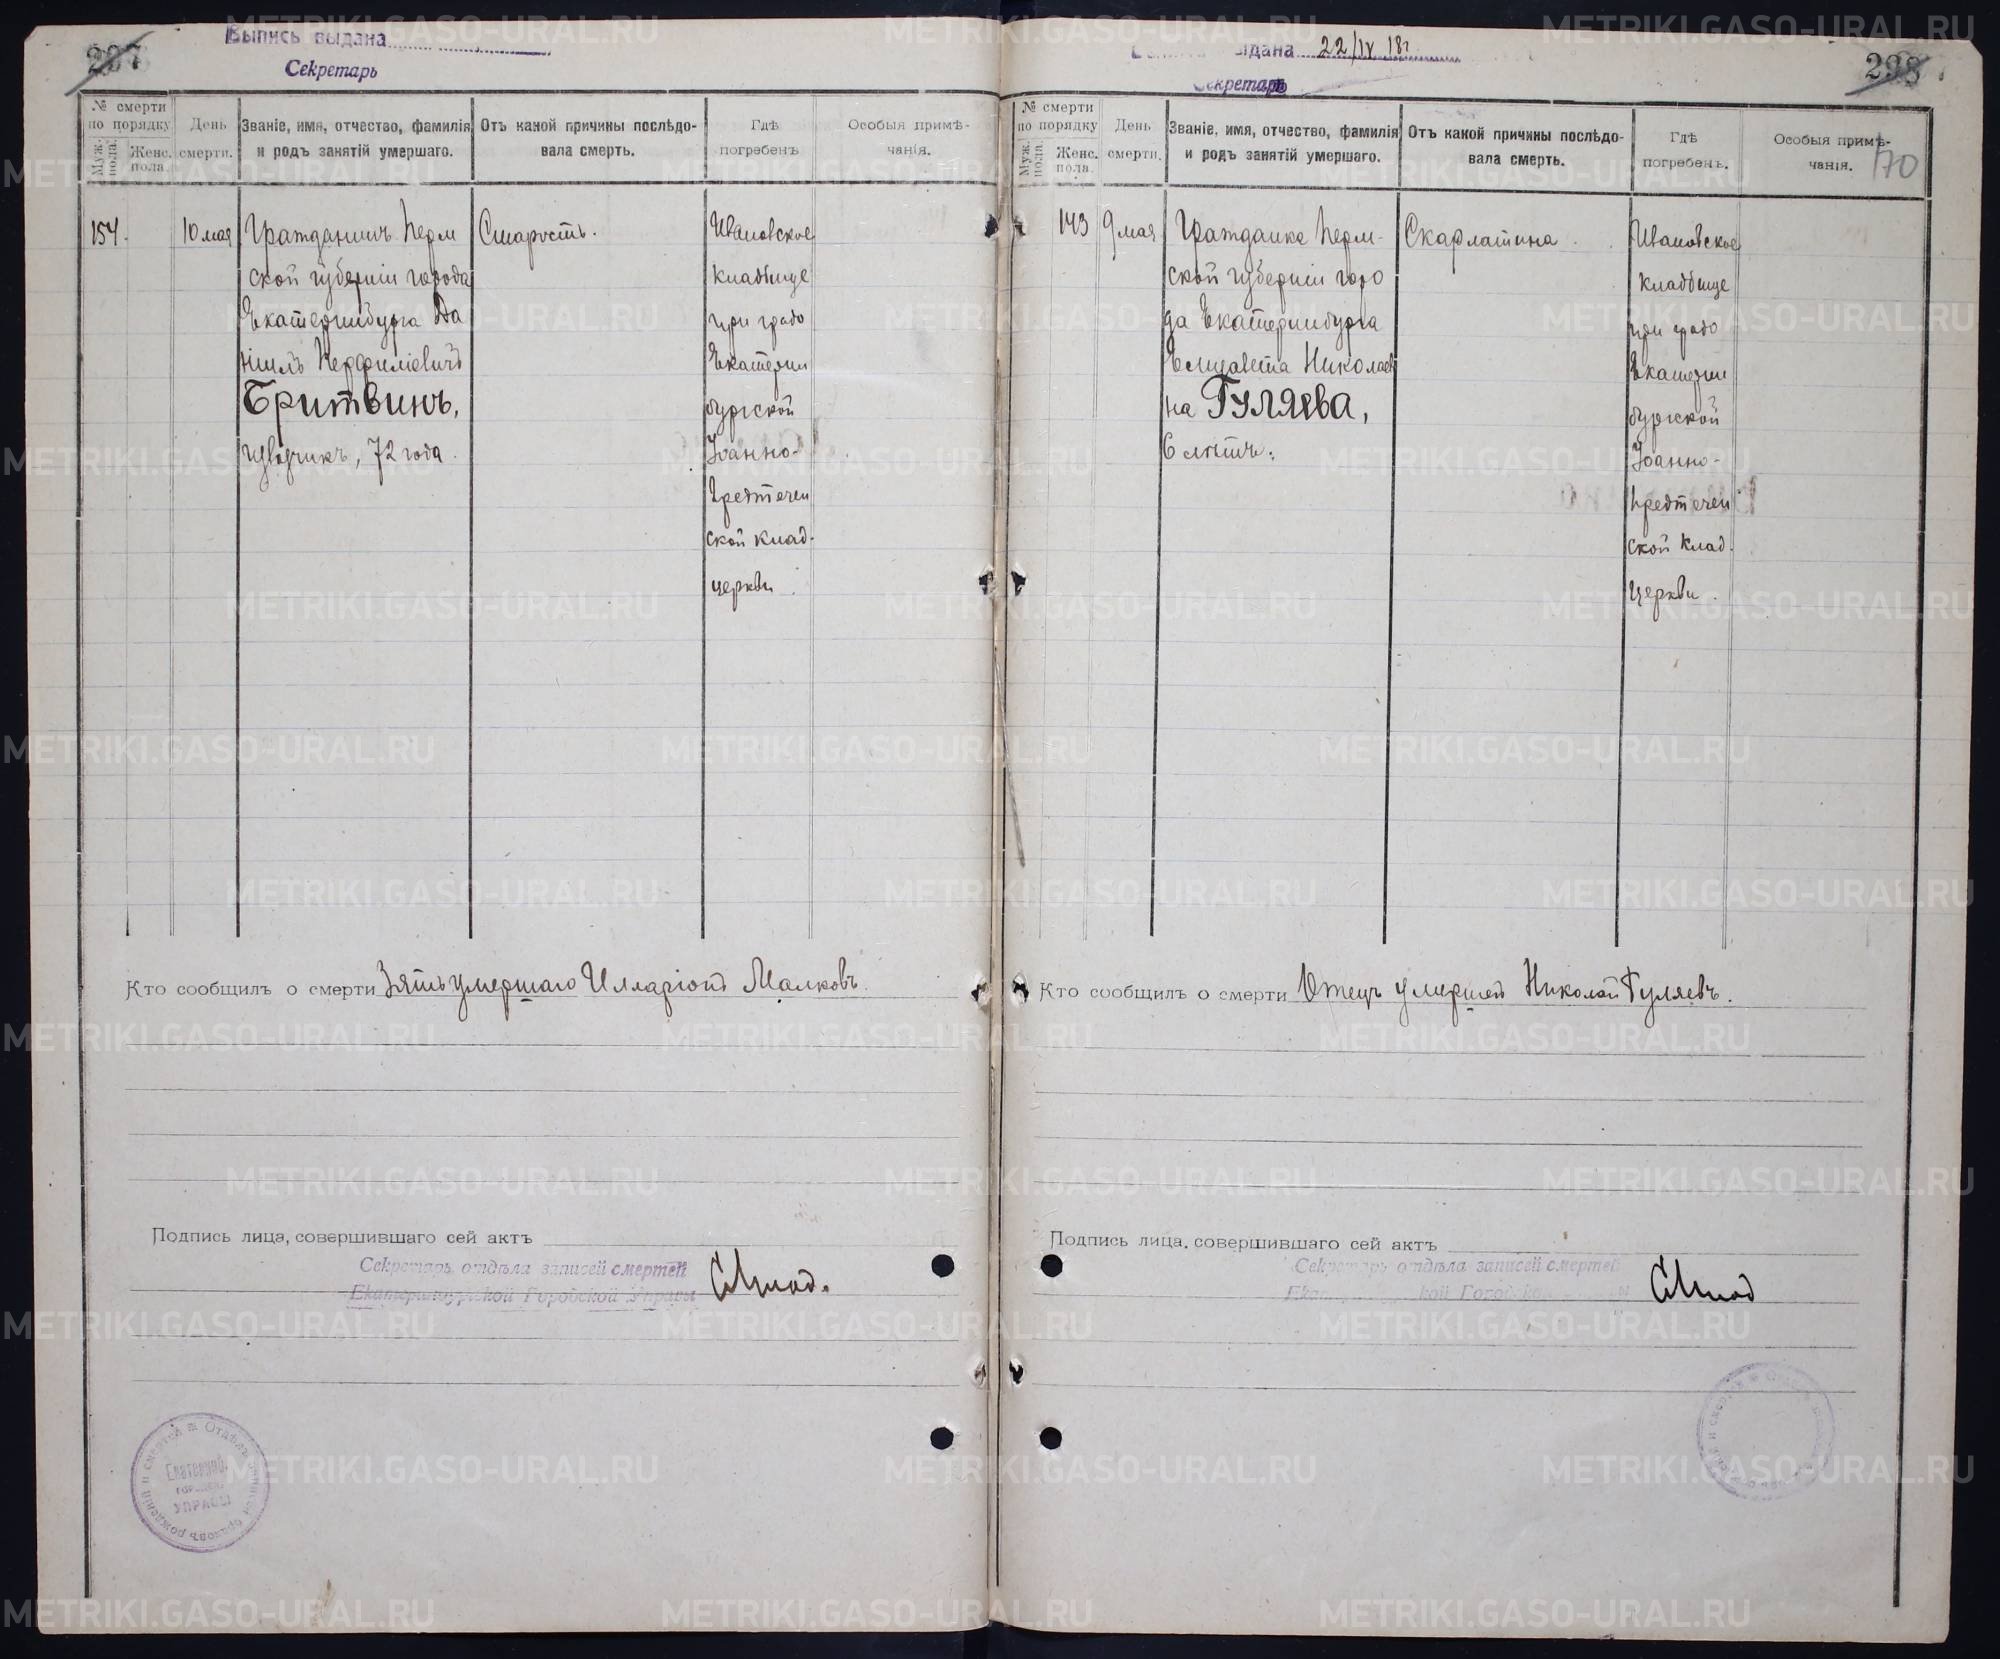 237
Выпись выдана
Секретарь
№ смерти по порядку
Муж. пола.
Женс. пола.
День смерти.
Званіе, имя, отчество, фамилія и родъ занятій умершаго.
Отъ какой причины послѣдовала смерть.
Гдѣ погребенъ
Особыя примѣчанія.
154.
10 мая
Гражданинъ Перм
ской губерніи города
Екатеринбурга Да
ніилъ Перфиліевичъ
Бритвинъ,
извозчикъ, 72 года.
Старость.
Ивановское
кладбище
при градо
Екатерин
бургской
Іоанно-
Предтечен
ской клад.
церкви.
Кто сообщилъ о смерти Зять умершаго Илларіонъ Малковъ.
Подпись лица, совершившаго сей актъ
Секретарь отдѣла записей смертей
Екатеринбургской Городской Управы
Отдѣлъ записи браковъ рожденій и смертей
Екатеринб.
Городск.
УПРАВЫ
298
выдана 22/IV 18г
Секретарь
170
№ смерти по порядку
Муж. пола.
Женс. пола.
День смерти.
Званіе, имя, отчество, фамилія и родъ занятій умершаго.
Отъ какой причины послѣдовала смерть.
Гдѣ погребенъ.
Особыя примѣчанія.
143
9 мая
Гражданка Перм-
ской губерніи горо
да Екатеринбурга
Елизавета Николаев
на Гуляева,
6 лѣтъ.
Скарлатина.
Ивановское
кладбище
при градо
Екатерин
бургской
Іоанно-
Предтечен
ской клад.
церкви.
Кто сообщилъ о смерти Отецъ умершей Николай Гуляевъ.
Подпись лица, совершившаго сей актъ
Секретарь отдѣла записей смертей
METRIKI.GASO-URAL.RU